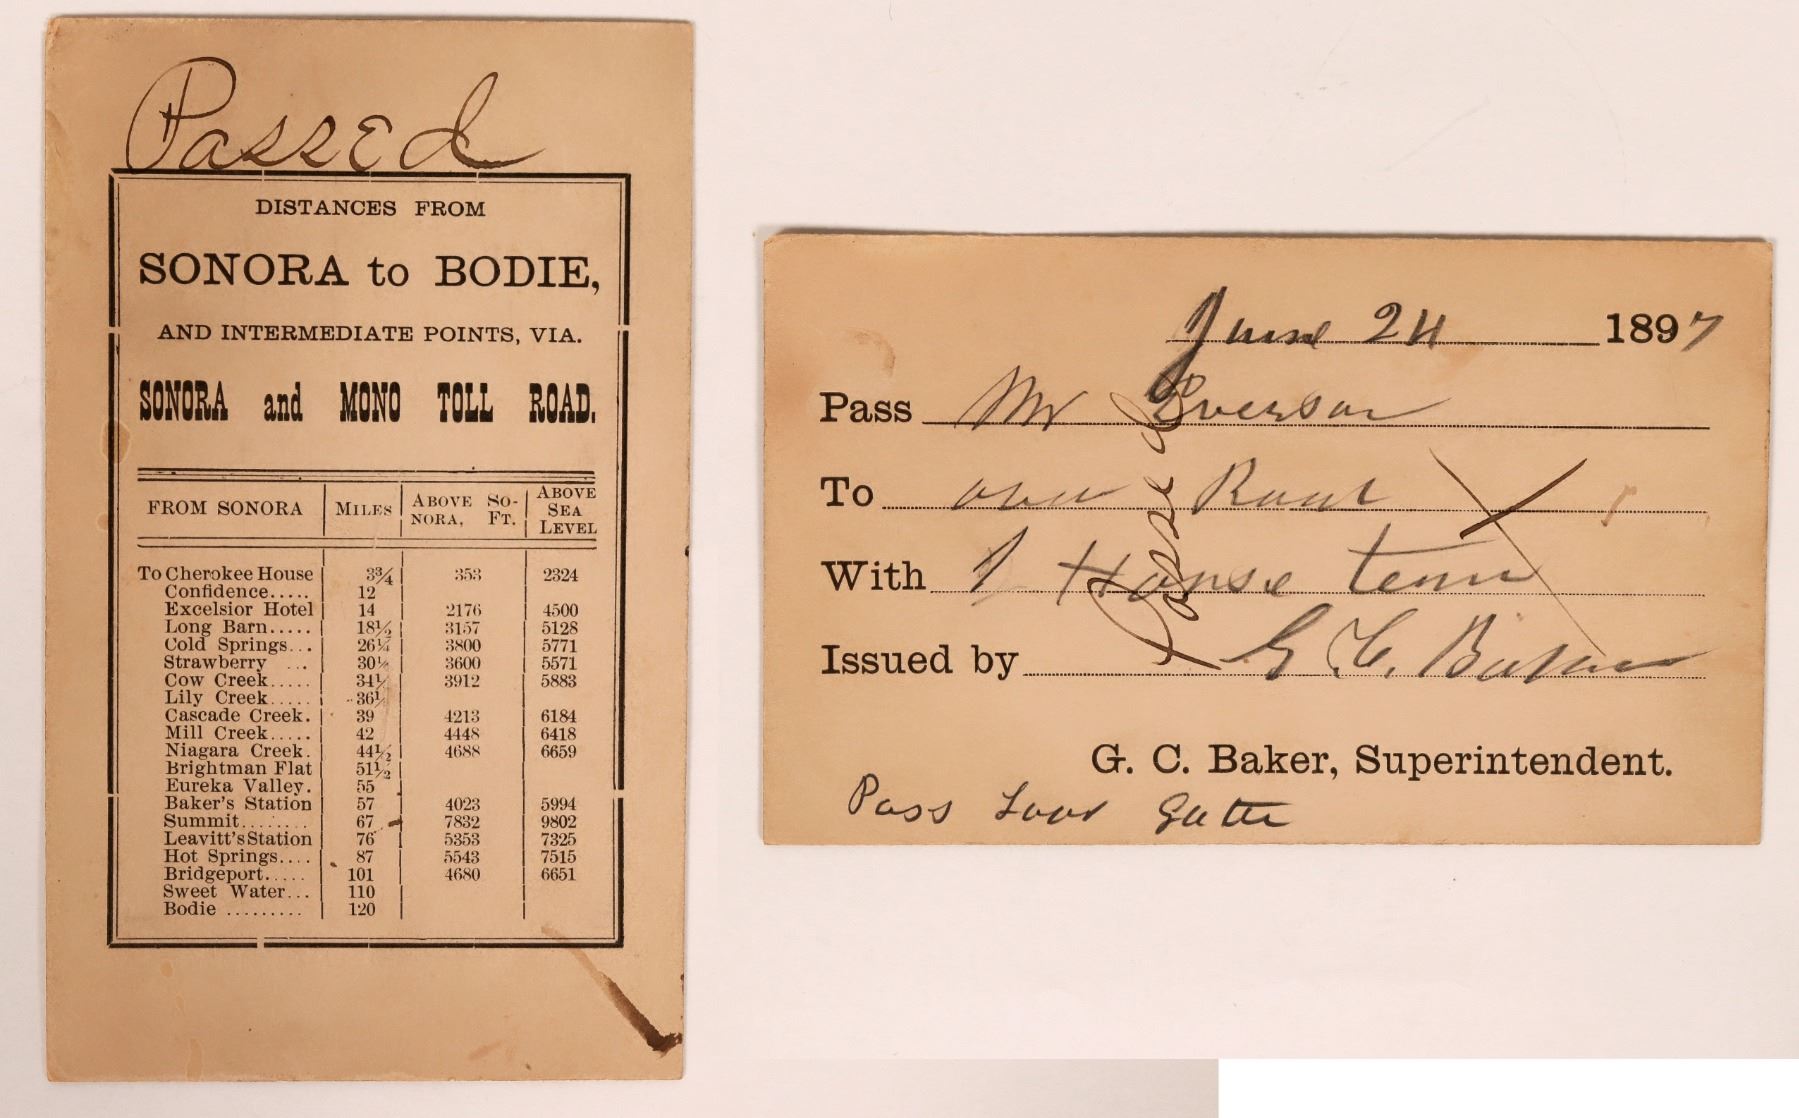 Passed
DISTANCES FROM
SONORA to BODIE,
AND INTERMEDIATE POINTS, VIA.
SONORA and MONO TOLL ROAD.
FROM SONORA | MILES | ABOVE SO-NORA, FT. | ABOVE SEA LEVEL
To Cherokee House 3¾ 353 2324
Confidence..... 12
Excelsior Hotel 14 2176 4500
Long Barn..... 18½ 3157 5128
Cold Springs... 26¼ 3800 5771
Strawberry ... 30½ 3600 5571
Cow Creek..... 34½ 3912 5883
Lily Creek..... 36½
Cascade Creek. 39 4213 6184
Mill Creek..... 42 4448 6418
Niagara Creek. 44½ 4688 6659
Brightman Flat 51½
Eureka Valley. 55
Baker's Station 57 4023 5994
Summit........ 67 7832 9802
Leavitt's Station 76 5353 7325
Hot Springs.... 87 5543 7515
Bridgeport..... 101 4680 6651
Sweet Water... 110
Bodie ......... 120
June 24 1897
Pass Mr Everson
To over Road
With 1 Horse team
Issued by G. C. Baker
Passed
G. C. Baker, Superintendent.
Pass Gate